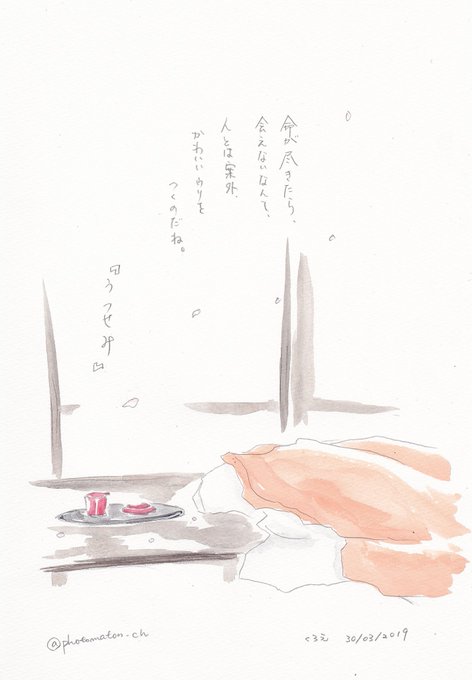 命が尽きたら、
会えないなんて、
人とは案外、
かわいいウソを
つくのだね。
『うつせみ』
@photomaton-ch
くろえ 30/03/2019